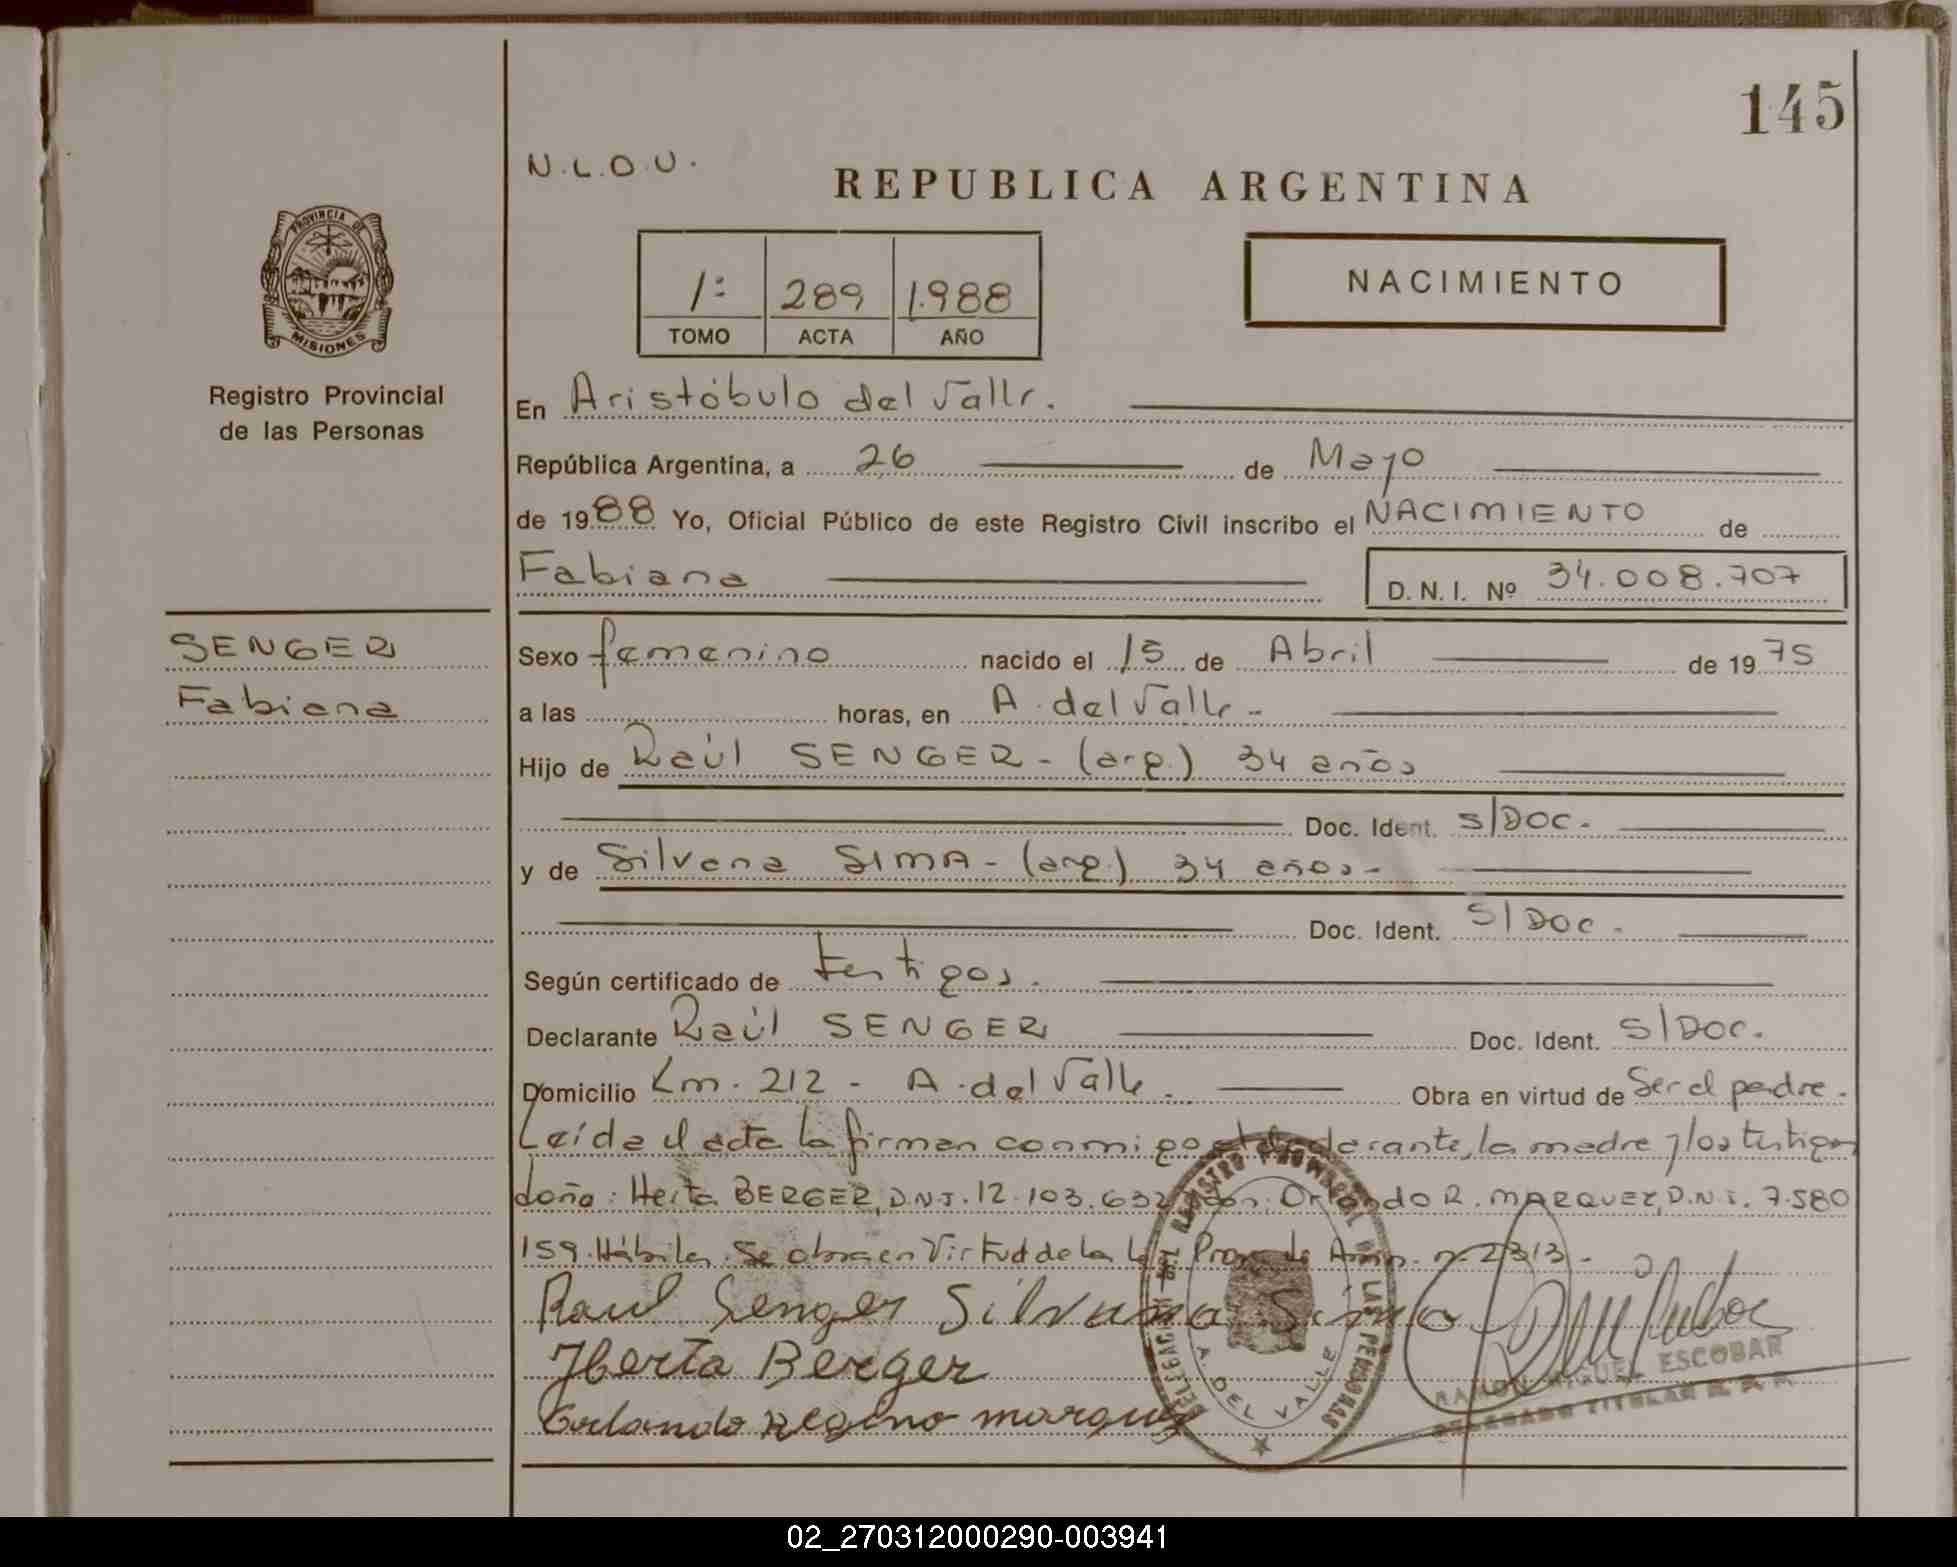 145
N.L.O.U.
REPUBLICA ARGENTINA
PROVINCIA DE
MISIONES
Registro Provincial
de las Personas
1: 289 1.988
TOMO ACTA AÑO
NACIMIENTO
En Aristóbulo del Valle.
República Argentina, a 26 de Mayo
de 1988 Yo, Oficial Público de este Registro Civil inscribo el NACIMIENTO de
Fabiana D. N. I. Nº 34.008.707
SENGER
Fabiana
Sexo femenino nacido el 15 de Abril de 1975
a las horas, en A. del Valle -
Hijo de Raúl SENGER - (arg.) 34 años
Doc. Ident. S/DOC.
y de Silvana SIMA - (arg.) 34 años -
Doc. Ident. S/DOC.
Según certificado de testigos.
Declarante Raúl SENGER Doc. Ident. S/DOC.
Domicilio Km. 212 - A. del Valle. Obra en virtud de Ser el padre.
Leída el acta la firman conmigo el declarante, la madre y los testigos
doña: Herta BERGER, D.N.I. 12.103.632 don: Orlando R. MARQUEZ, D.N.I. 7.580
159. Hábiles. Se obra en Virtud de la Prov. de Amn. n. 2313 -
Raul Senger Silvana Sima
Herta Berger
Orlando Regino marquez
REGISTRO PROVINCIAL DE LAS PERSONAS
DELEGACION
A. DEL VALLE
RAMON MIGUEL ESCOBAR
DELEGADO TITULAR R. P.
02_270312000290-003941